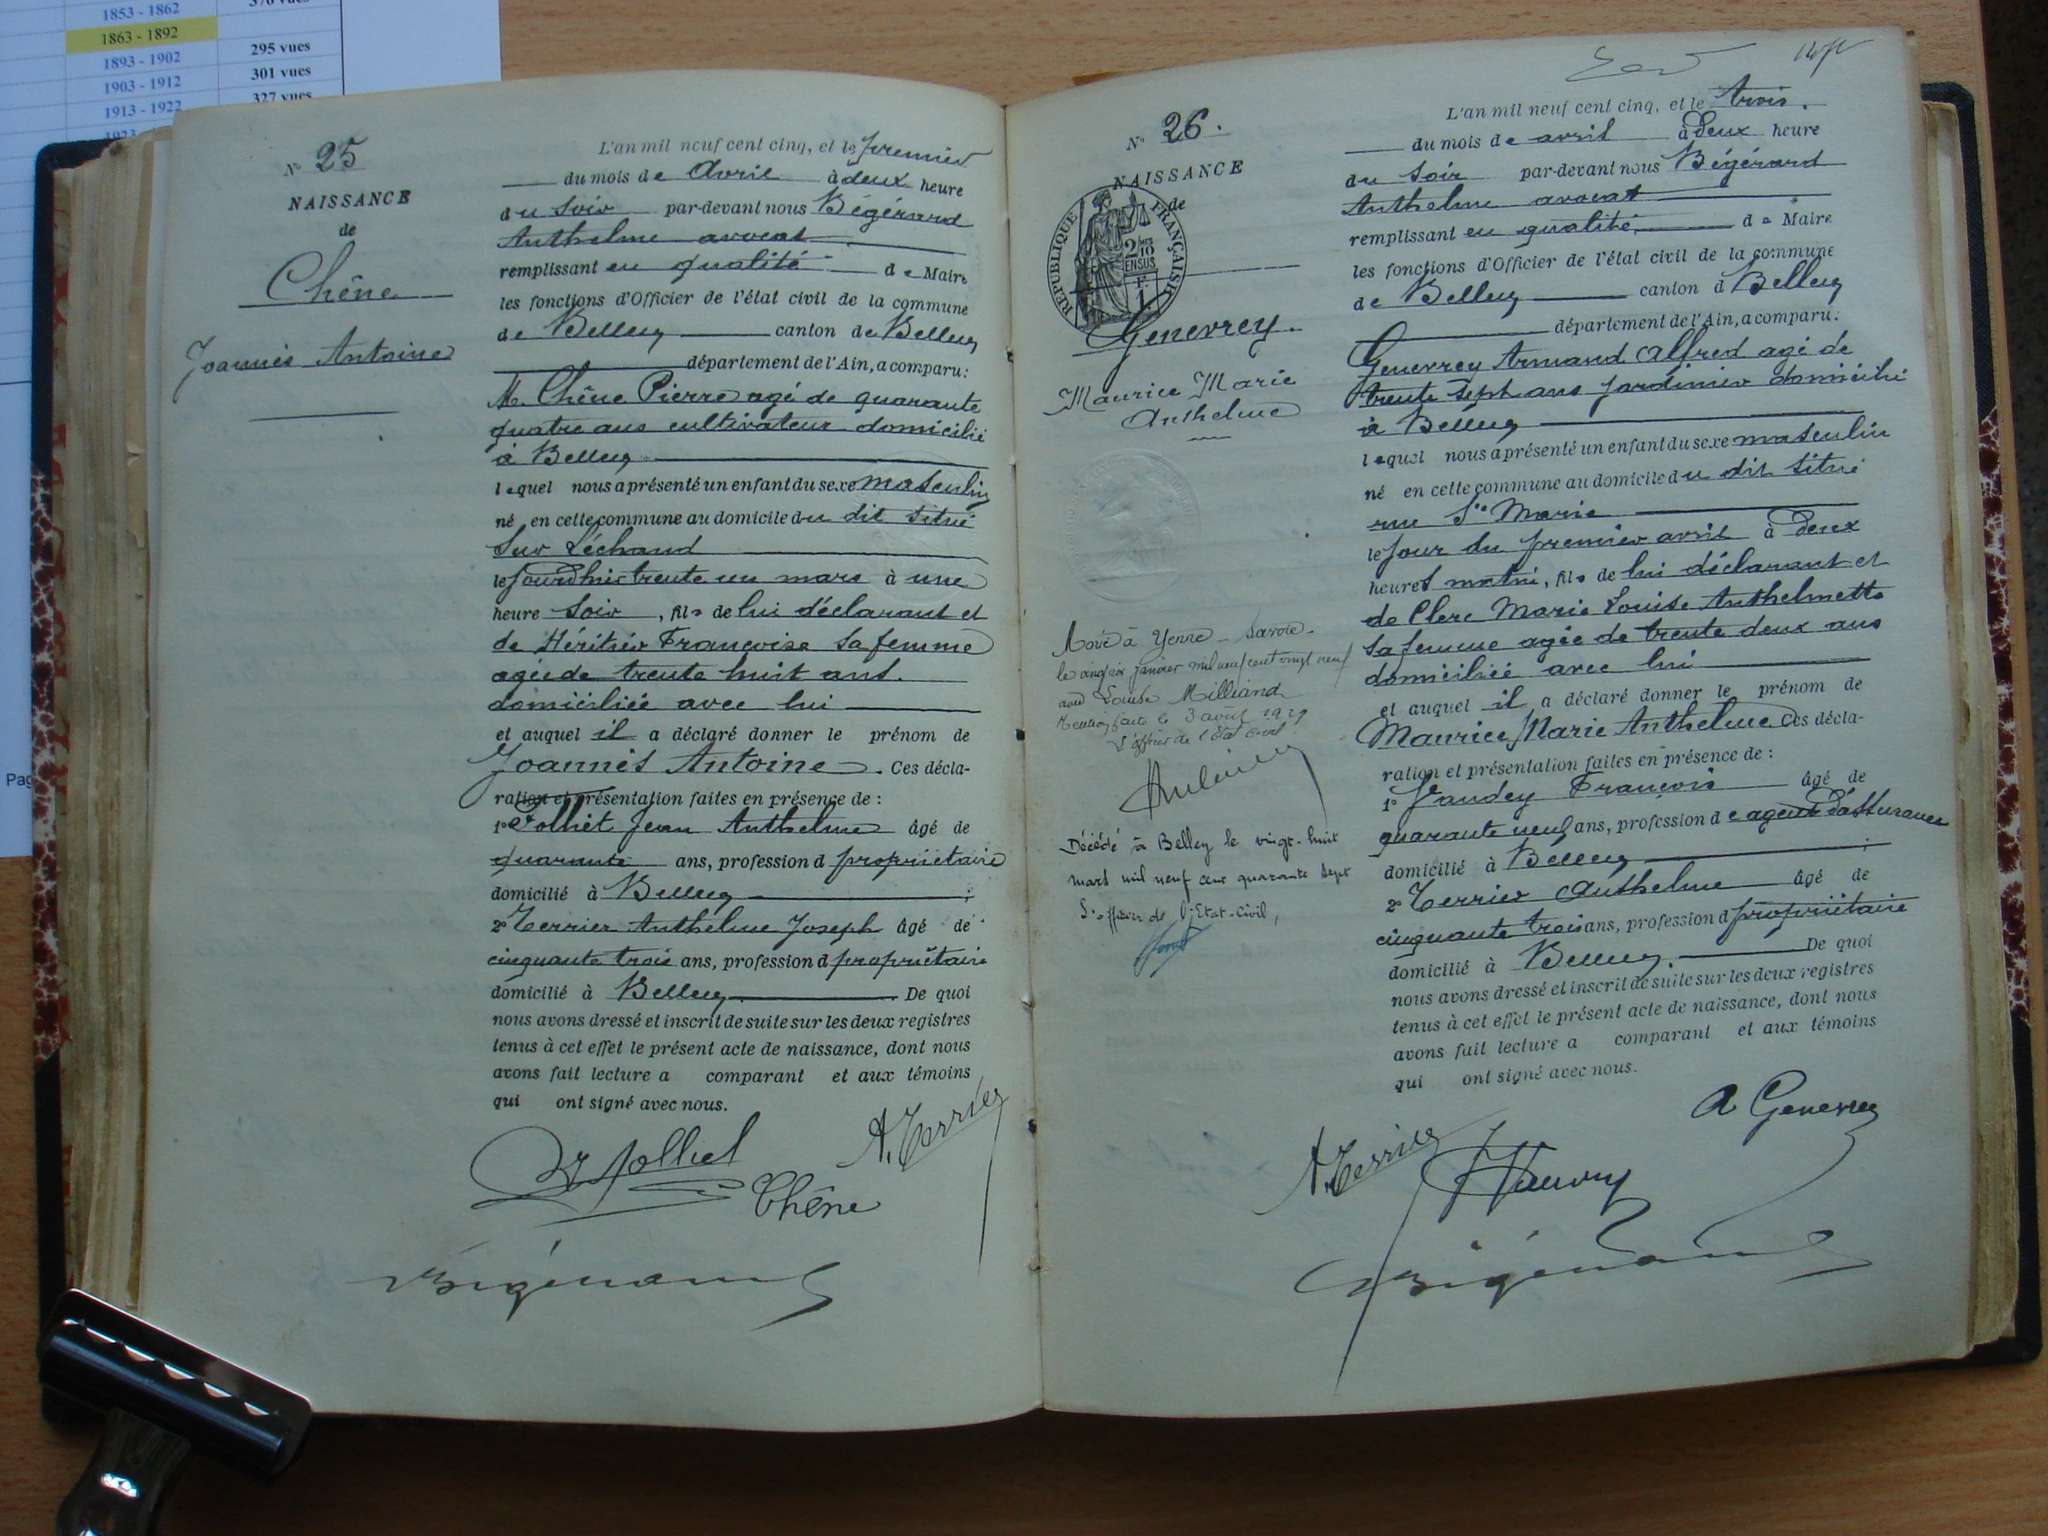 1853 - 1862
370 vues
1863 - 1892
1893 - 1902
295 vues
1903 - 1912
301 vues
1913 - 1922
327 vues
1923
Pag
N° 25
NAISSANCE
de
Chêne
Joannès Antoine
L'an mil neuf cent cinq, et le premier
du mois de Avril à deux heure
du soir par-devant nous Bégérard
Anthelme avocat
remplissant en qualité de Maire
les fonctions d'Officier de l'état civil de la commune
de Belley canton de Belley
département de l'Ain, a comparu:
M. Chêne Pierre agé de quarante
quatre ans cultivateur domicilié
à Belley
lequel nous a présenté un enfant du sexe masculin
né en cette commune au domicile du dit situé
sur Léchaud
le jourdhui trente un mars à une
heure soir, fils de lui déclarant et
de Héritier Françoise sa femme
agée de trente huit ans.
domiciliée avec lui
et auquel il a déclaré donner le prénom de
Joannès Antoine. Ces décla-
ration et présentation faites en présence de :
1° Jolliet Jean Anthelme âgé de
quarante ans, profession d propriétaire
domicilié à Belley ;
2° Terrier Anthelme Joseph âgé de
cinquante trois ans, profession d propriétaire
domicilié à Belley De quoi
nous avons dressé et inscrit de suite sur les deux registres
tenus à cet effet le présent acte de naissance, dont nous
avons fait lecture a comparant et aux témoins
qui ont signé avec nous.
A. Terrier
Jolliet
Chêne
Bégérard
N° 26.
NAISSANCE
de
REPUBLIQUE FRANÇAISE
2/10
EN SUS
Genevrey.
Maurice Marie
Anthelme
Marié à Yenne - Savoie.
le janvier mil neuf cent vingt neuf
avec Louise Milliand
Mention faite le 3 août 1929
L'officier de l'Etat Civil
Décédé à Belley le vingt-huit
mars mil neuf cent quarante sept
L'officier de l'Etat-Civil,
L'an mil neuf cent cinq, et le trois.
du mois de avril à deux heure
du soir par-devant nous Bégérard
Anthelme avocat
remplissant en qualité de Maire
les fonctions d'Officier de l'état civil de la commune
de Belley canton d Belley
département de l'Ain, a comparu:
Genevrey Armand Alfred agé de
trente sept ans jardinier domicilié
à Belley
lequel nous a présenté un enfant du sexe masculin
né en cette commune au domicile du dit situé
rue Ste Marie
le jour du premier avril à deux
heures matin, fils de lui déclarant et
de Clerc Marie Louise Anthelmette
sa femme agée de trente deux ans
domiciliée avec lui
et auquel il a déclaré donner le prénom de
Maurice Marie Anthelme Ces décla-
ration et présentation faites en présence de :
1° François âgé de
quarante neuf ans, profession de agent d'assurances
domicilié à Belley ;
2° Terrier Anthelme âgé de
cinquante trois ans, profession d propriétaire
domicilié à Belley. De quoi
nous avons dressé et inscrit de suite sur les deux registres
tenus à cet effet le présent acte de naissance, dont nous
avons fait lecture a comparant et aux témoins
qui ont signé avec nous.
A Genevrey
A. Terrier
Bégérard